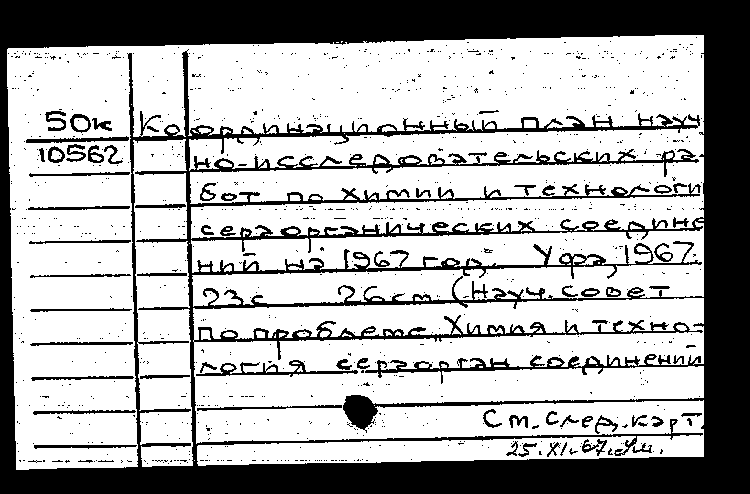 50к Координационный план науч
10562 но-исследовательских ра-
бот по химии и технологи
сераорганических соедине
ний на 1967 год. Уфа, 1967.
23с 26см (Науч. совет
по проблеме „Химия и техно-
логия сераорган соединений
См. след. карт.
25.XI.67.